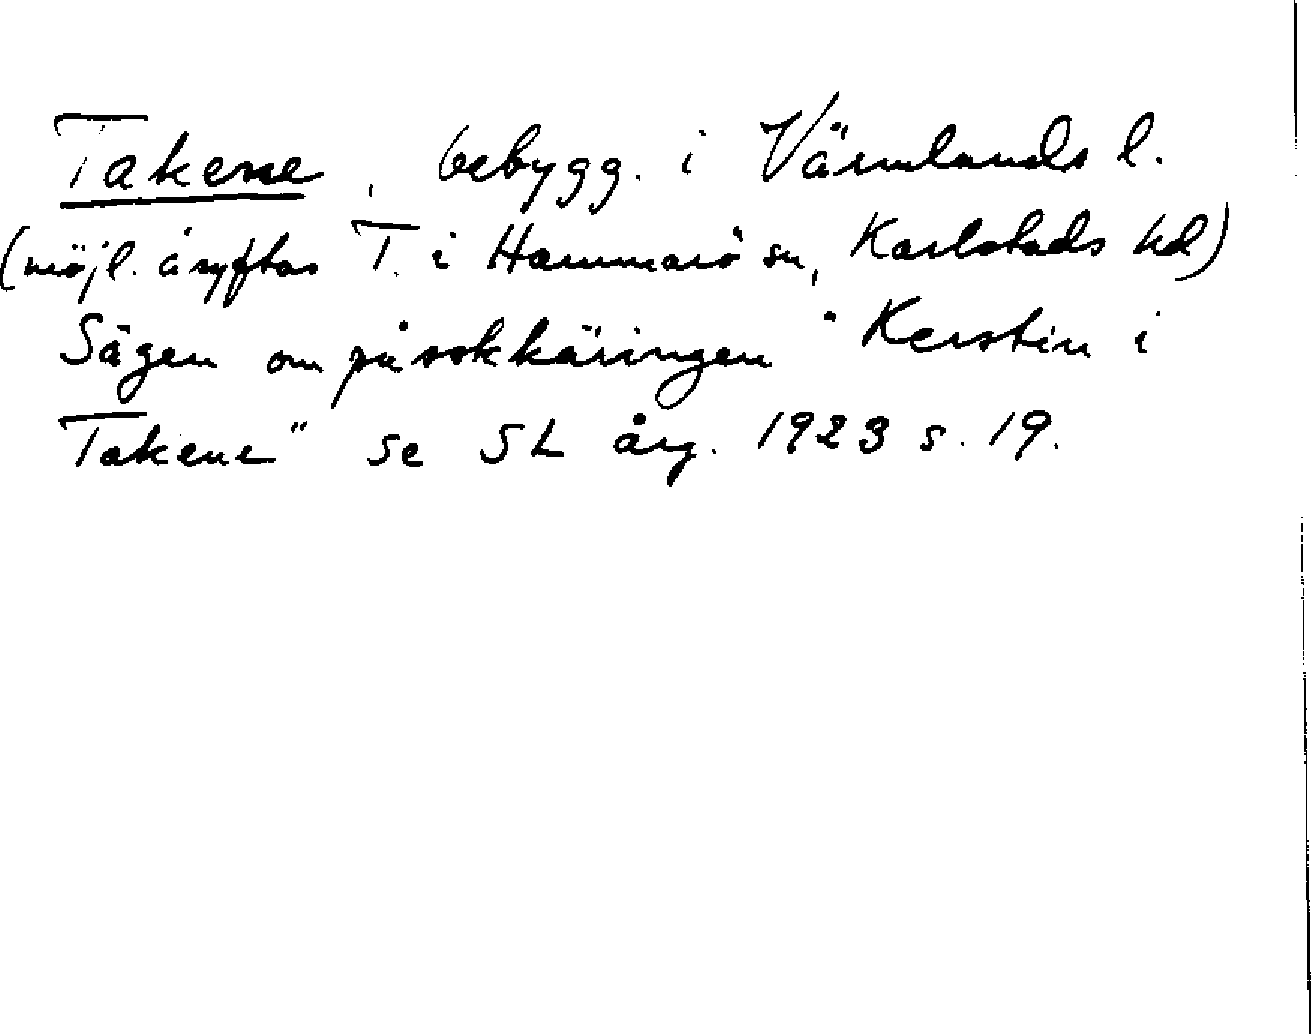 Takene, bebygg. i Värmlands l.
(möjl. åsyftas T. i Hammarö sn, Karlstads hd)
Sägen om påskkäringen "Kerstin i
Takene" se SL årg. 1923 s. 19.